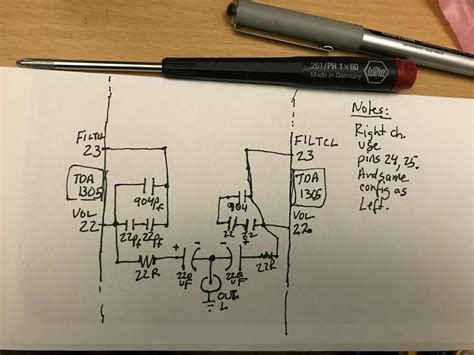 261/PH 1×60
Wiha
Made in Germany
Notes:
Right ch.
use
pins 24, 25.
And same
config as
Left.
FILTCL
23
TDA
1305
VOL
22
904Pf
22Pf 22Pf
22R
+ -
220
uF
FILTCL
23
TDA
1305
VOL
22
904
22 22
22R
- +
220
uF
OUT
L